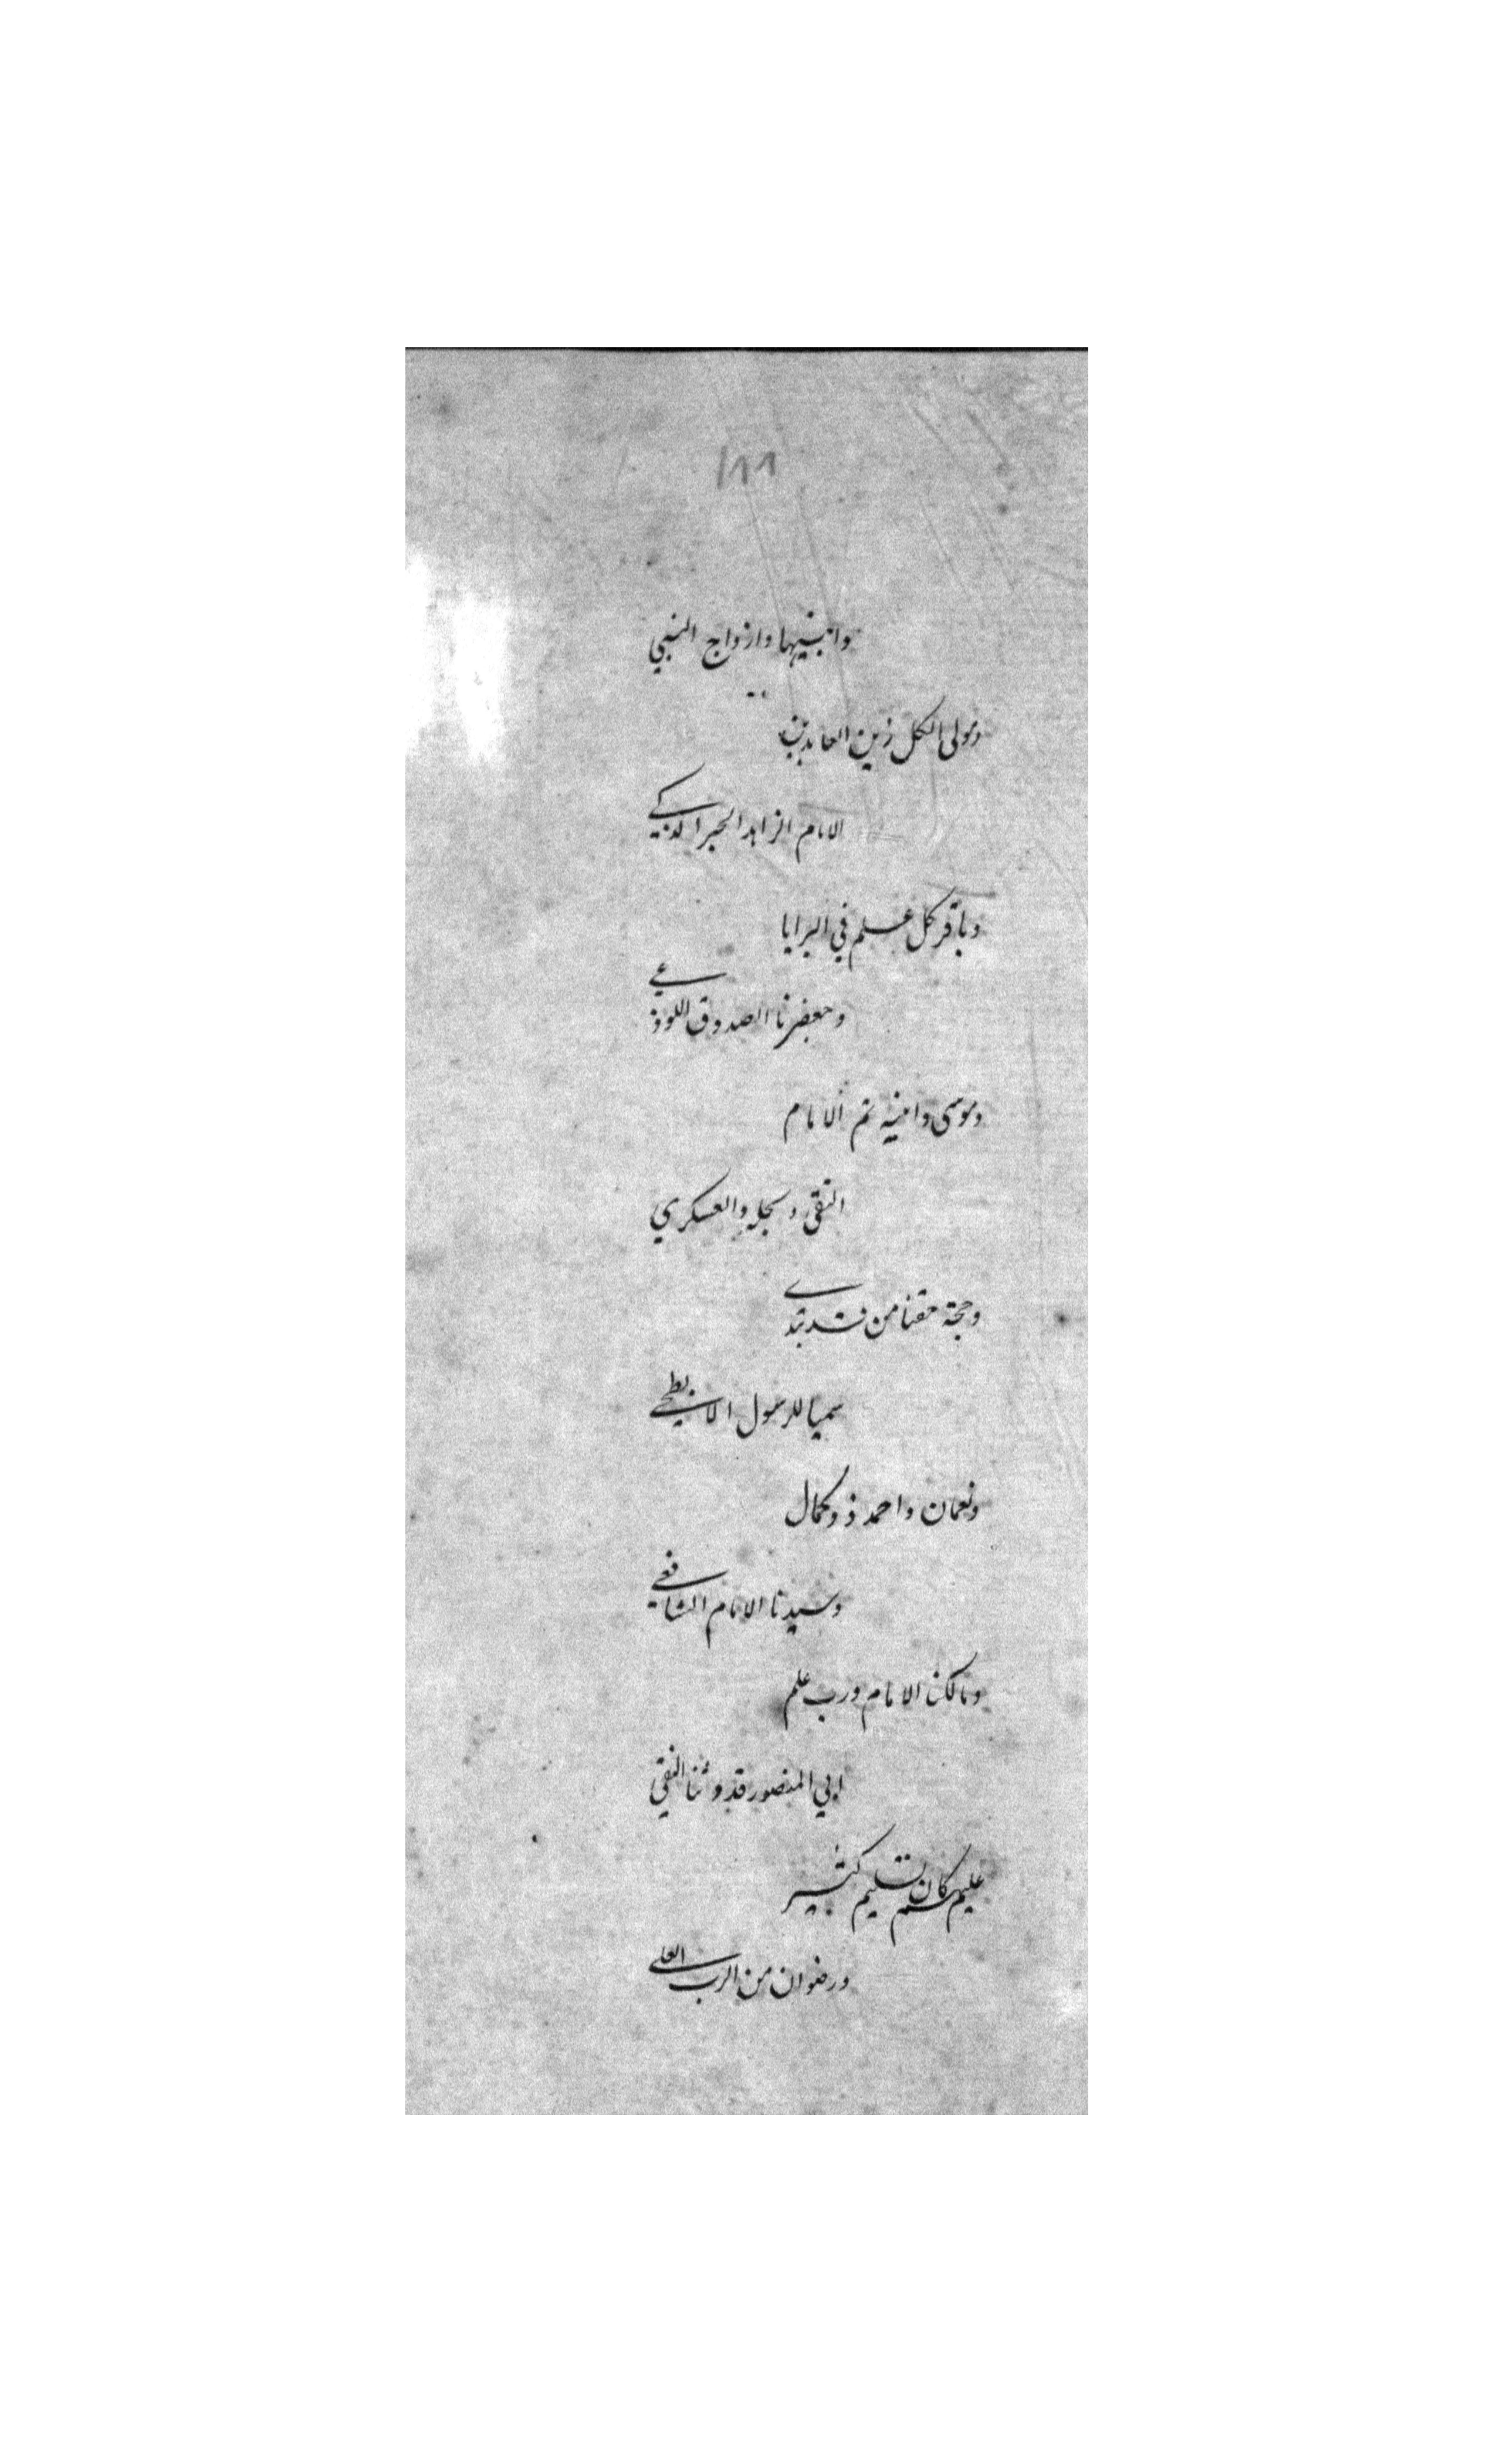 ١٨٨
وابنيها وازواج النبي
ومولى الكل زين العابدين
الامام الزاهد الحبر الذكي
وباقر كل علم في البرايا
وجعفرنا الصدوق اللوذعي
وموسى وابنه ثم الامام
التقى ونجله والعسكري
وحجة حقنا من قد تبدى
سميا للرسول الابطحي
ونعمان واحمد ذو كمال
وسيدنا الامام الشافعي
ومالكنا الامام ورب علم
ابي المنصور قدوتنا النقي
عليهم كان تسليم كثير
ورضوان من الرب العلي